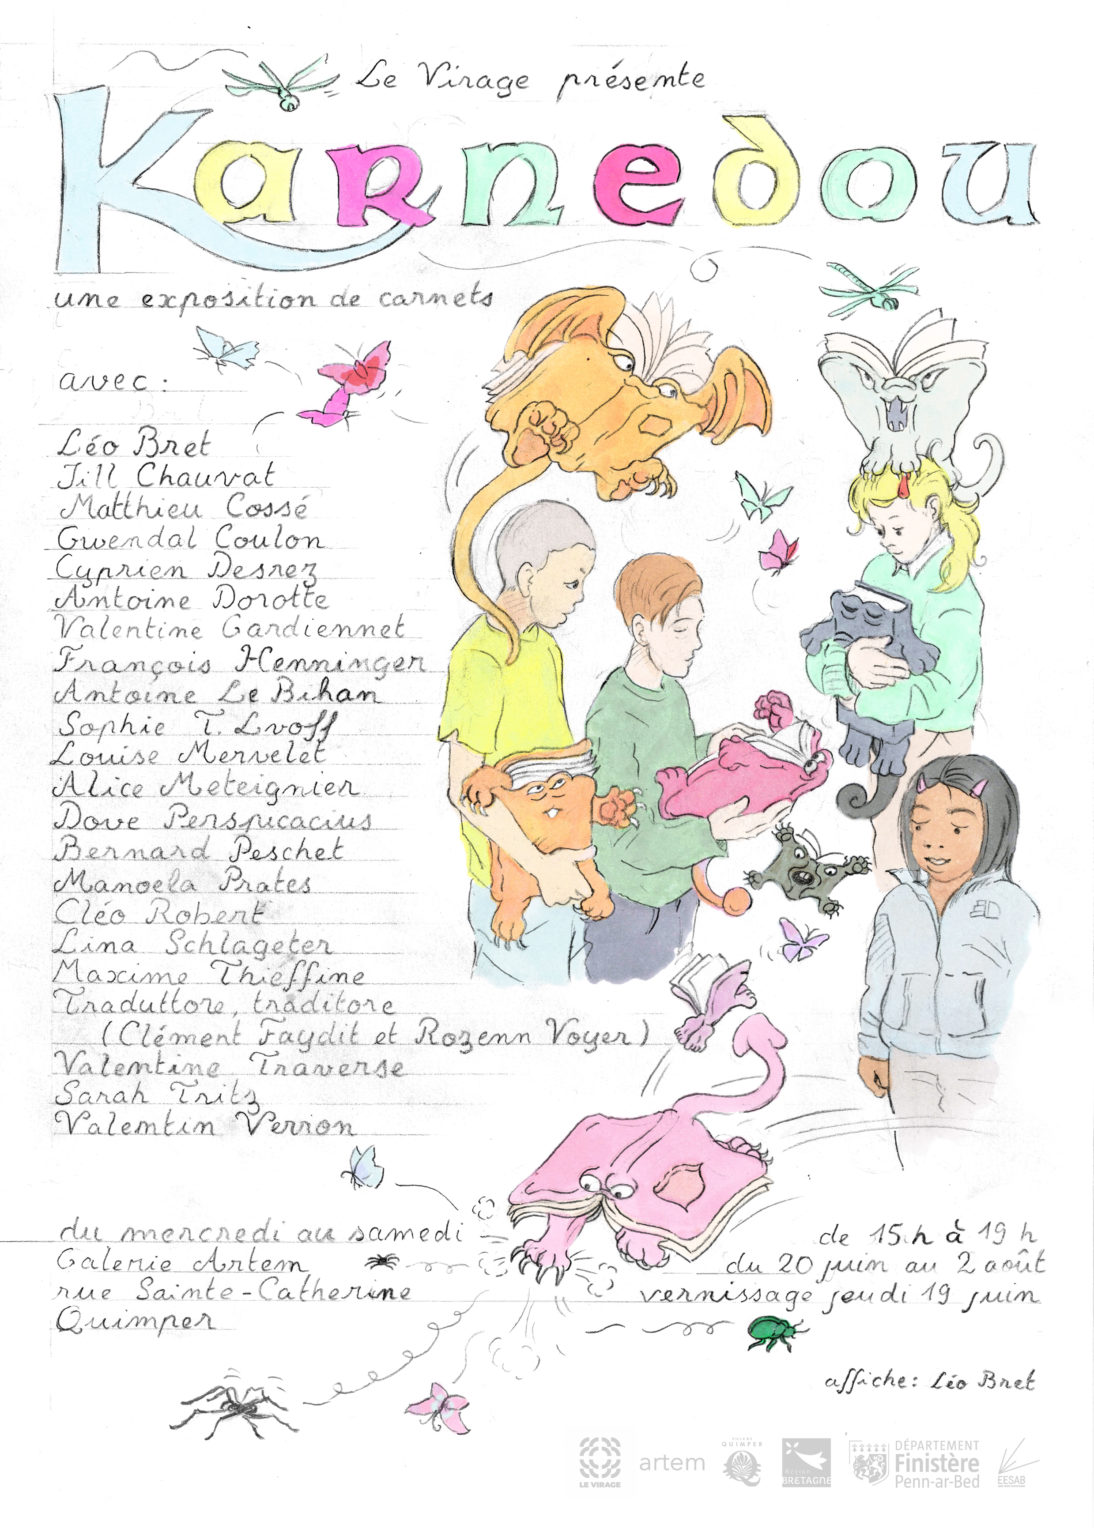 Le Virage présente
Karnedou
une exposition de carnets
avec :
Léo Bret
Jill Chauvat
Matthieu Cossé
Gwendal Coulon
Cyprien Desrez
Antoine Dorotte
Valentine Gardiennet
François Henninger
Antoine Le Bihan
Sophie T. Lvoff
Louise Mervelet
Alice Meteignier
Dove Perspicacius
Bernard Peschet
Manoela Prates
Cléo Robert
Lina Schlageter
Maxime Thieffine
Traduttore, traditore
(Clément Faydit et Rozenn Voyer)
Valentine Traverse
Sarah Tritz
Valentin Verron
du mercredi au samedi
de 15 h à 19 h
Galerie Artem
du 20 juin au 2 août
rue Sainte-Catherine
vernissage jeudi 19 juin
Quimper
affiche: Léo Bret
LE VIRAGE
artem
QUIMPER
BRETAGNE
DÉPARTEMENT
Finistère
Penn-ar-Bed
EESAB